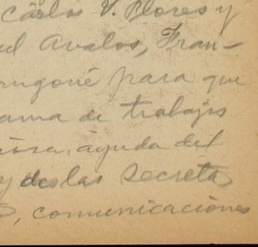 Carlos V. Flores y
Avalos, Fran-
para que
ama de trabajos
ayuda del
y de las Secreta
, comunicaciones